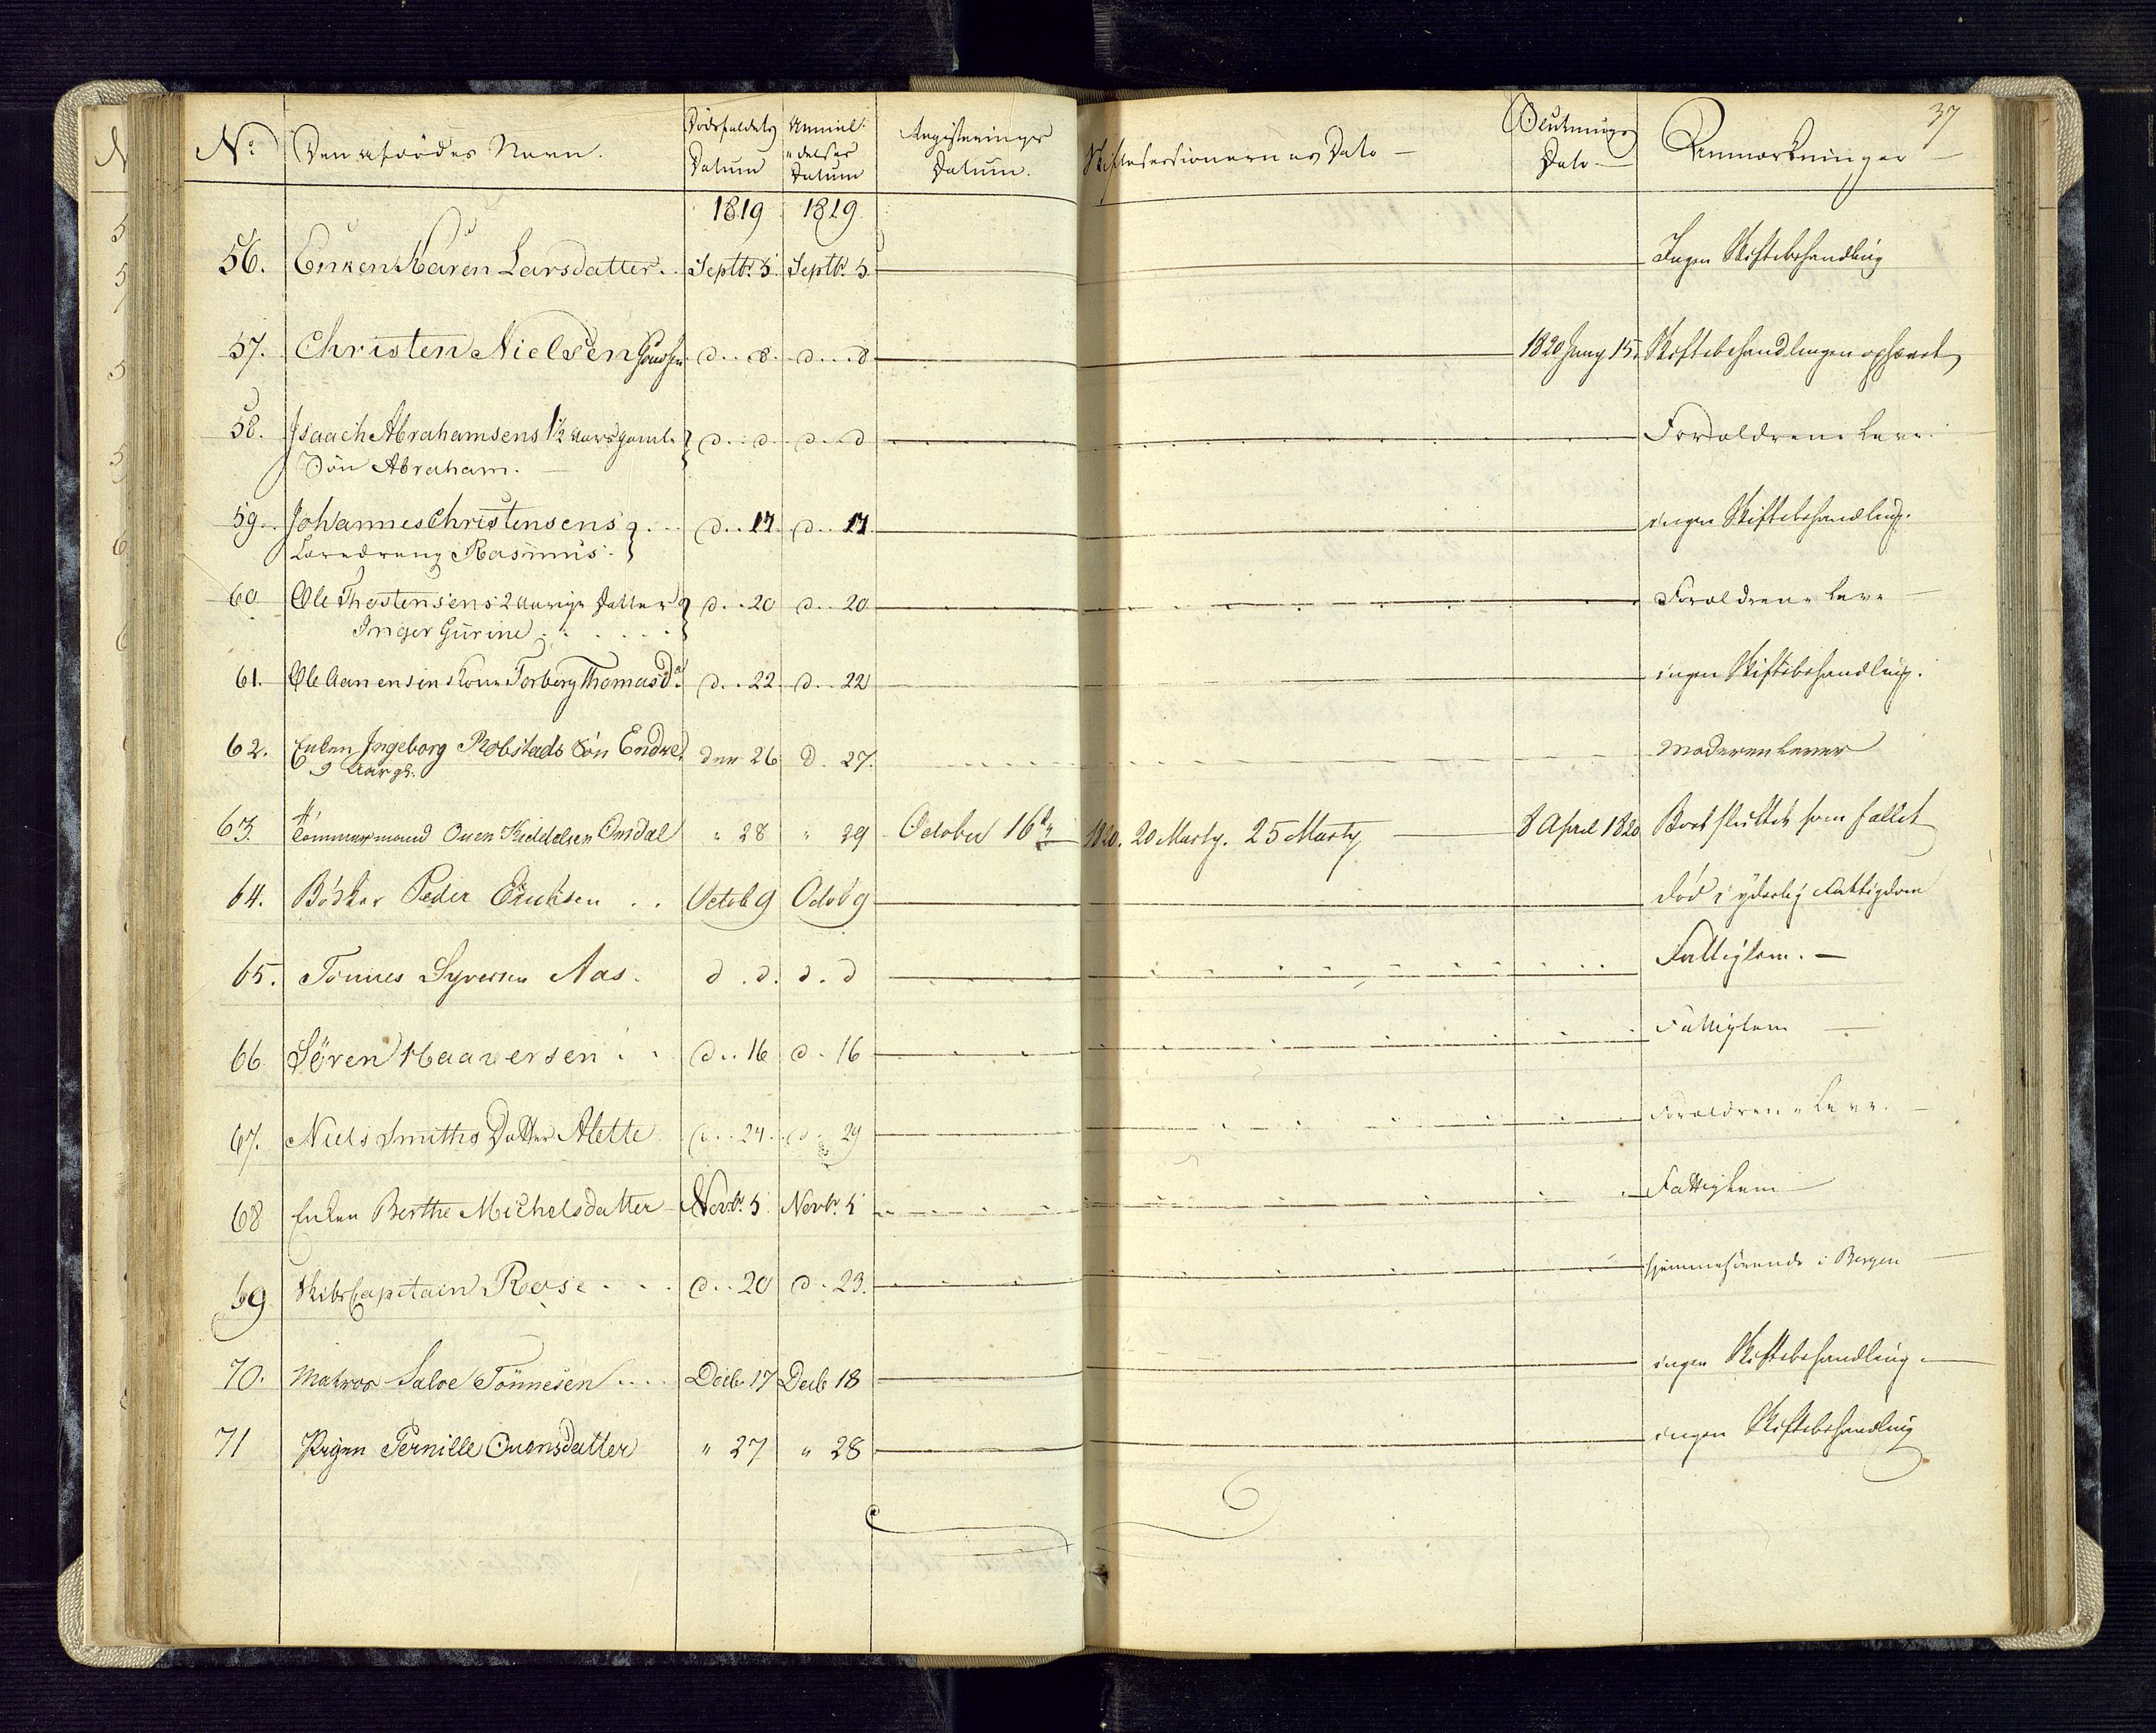 37
No Den afdødes Navn. Dødsfaldets Datum Anmeldelses Datum Registerings Datum. Skiftesessionernes Dato — Slutnings Dato — Anmærkninger —
1819 1819
56. Enken Karen Larsdatter. Septbr 5. Septbr 5 Ingen Skiftebehandling
57. Christen Nielsen d. 8. d. 8 1820 Juny 15. Skiftebehandlingen ophævet
58. Isaach Abrahamsens 1½ Aars gamle d. d. d. d Forældrene leve.
Søn Abraham.
59. Johannes Christensens d. 17. d. 17. ingen Skiftebehandling.
Læredreng Rasmus.
60 Ole Thostensens 2 Aarige Datter d. 20 d. 20 Forældrene leve
Inger Gurine
61. Ole Aanensens Kone Torborg Thomasdr. d. 22. d. 22 ingen Skiftebehandling.
62. Enken Ingeborg Robstads Søn Endre den 26 d. 27. Moderen lever
9 Aar gl.
63. Tømmermand Ouen Kieddelsen Omdal " 28 " 29 October 16de 1820. 20 Marty. 25 Marty 8 April 1820 Boet sluttet som fallit
64. Bødker Peder Erichsen Octob 9 Octob 9 død i yderlig Fattigdom
65. Tønnes Syversen Aas. d. d. d. d Fattiglem. —
66 Søren Haaversen d. 16 d. 16 Fattiglem —
67. Niels Smiths Datter Alette d. 24. d. 29 Forældrene leve. —
68 Enken Berthe Michelsdatter Novbr. 5 Novbr. 5 Fattiglem —
69 Skibs Capitain Rose d. 20 d. 23. hjemmehørende i Bergen —
70. Matros Salve Tønnesen Decb. 17 Decb 18 ingen Skiftebehandling. —
71 Pigen Pernille Ouensdatter " 27 " 28 ingen Skiftebehandling